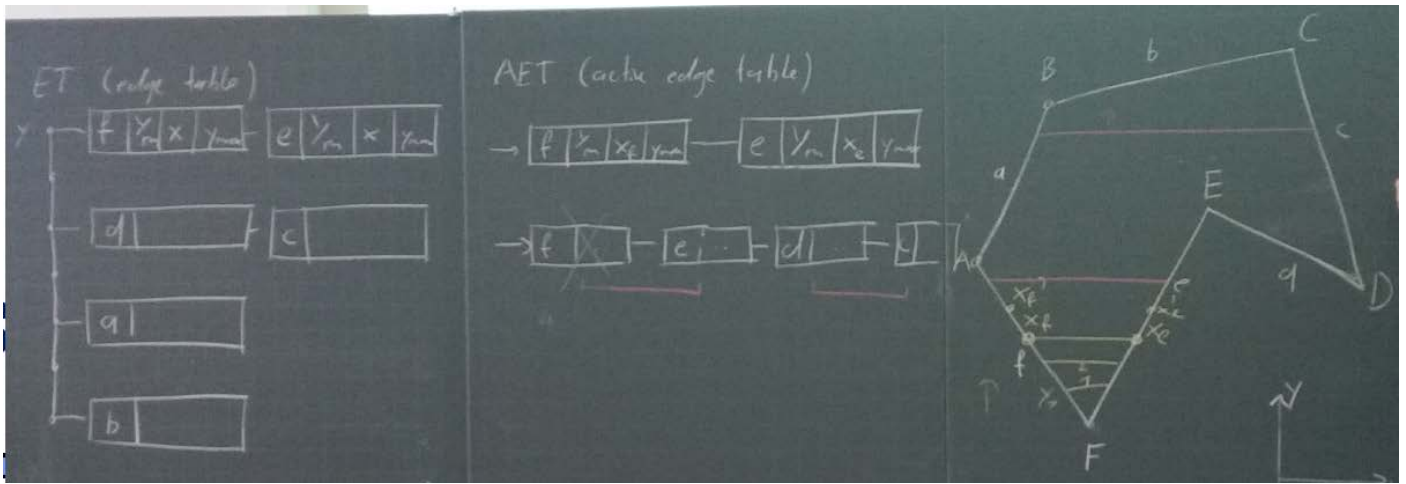 ET (edge table)
y
f 1/m x ymax e 1/m x ymax
d c
a
b
AET (active edge table)
f 1/m xf ymax e 1/m xe ymax
f e ... d ... c
B b C
a c
E
A e d D
xf' xe'
xf xe
f
2
1
P
F
Y